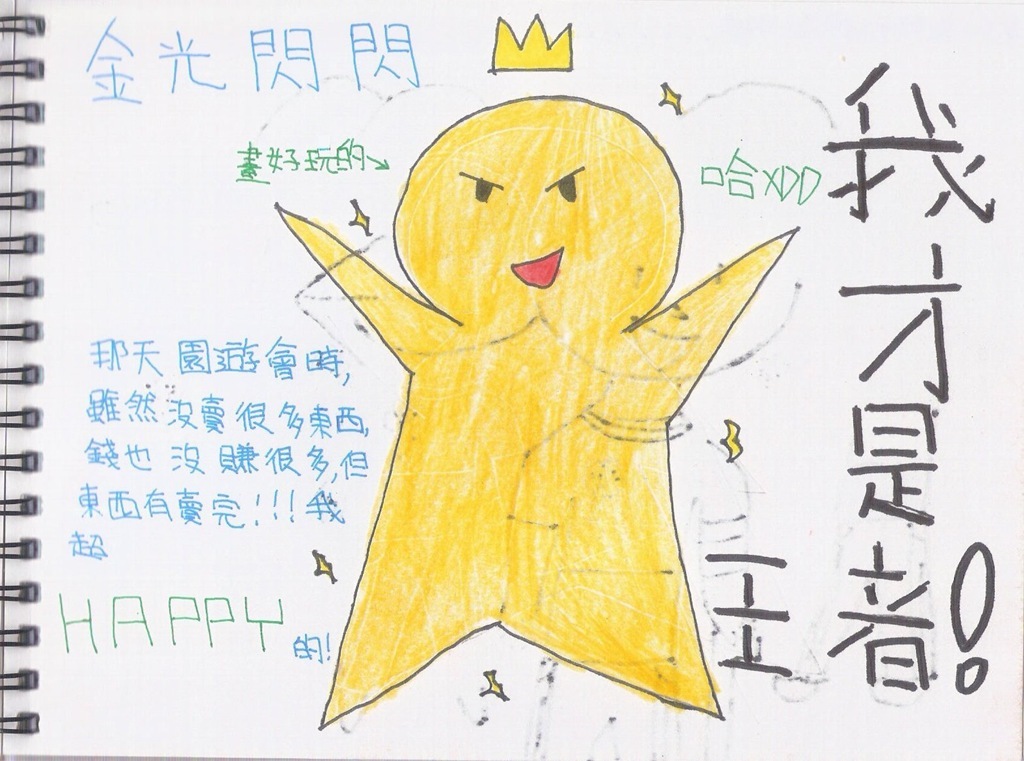 金光閃閃
畫好玩的→
哈XDD
我才是
王者!
那天園遊會時,
雖然沒賣很多東西,
錢也沒賺很多,但
東西有賣完!!!我
超
HAPPY的!